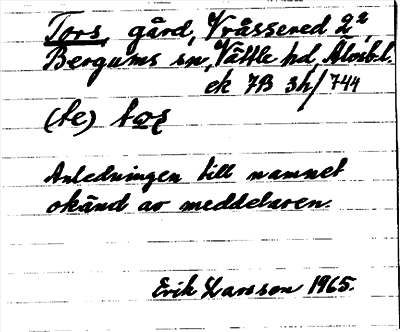 Tors, gård, Vråssered 2²,
Bergums sn, Vättle hd, Älvsb.l.
ek 7B 3h/744
(te) tǫʂ
Anledningen till namnet
okänd av meddelaren.
Erik Larsson 1965.